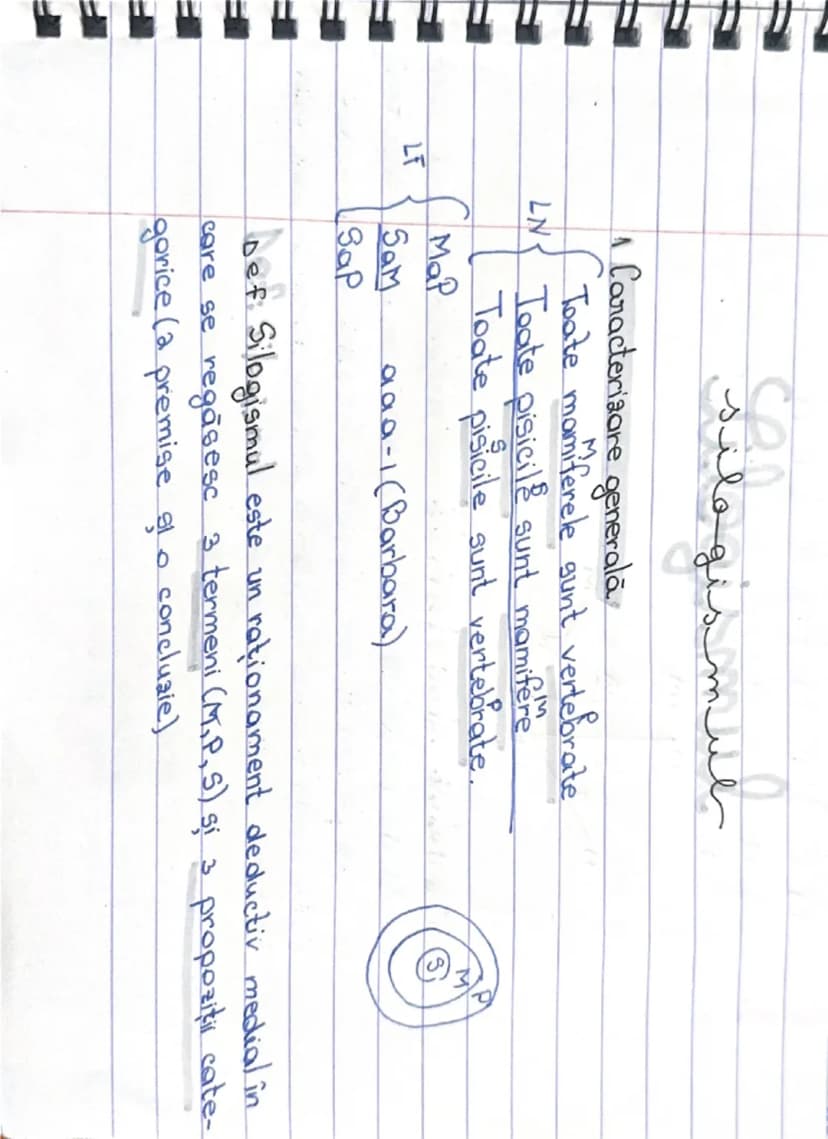 silogismul
1 Caracterizare generală
LN
M P
Toate mamiferele sunt vertebrate
S M
Toate pisicile sunt mamifere
S P
Toate pisicile sunt vertebrate.
LF
MaP
SaM aaa-1 (Barbara)
SaP
S M P
Def: Silogismul este un raționament deductiv medial în
care se regăsesc 3 termeni (M, P, S) și 3 propoziții cate-
gorice (2 premise și o concluzie)